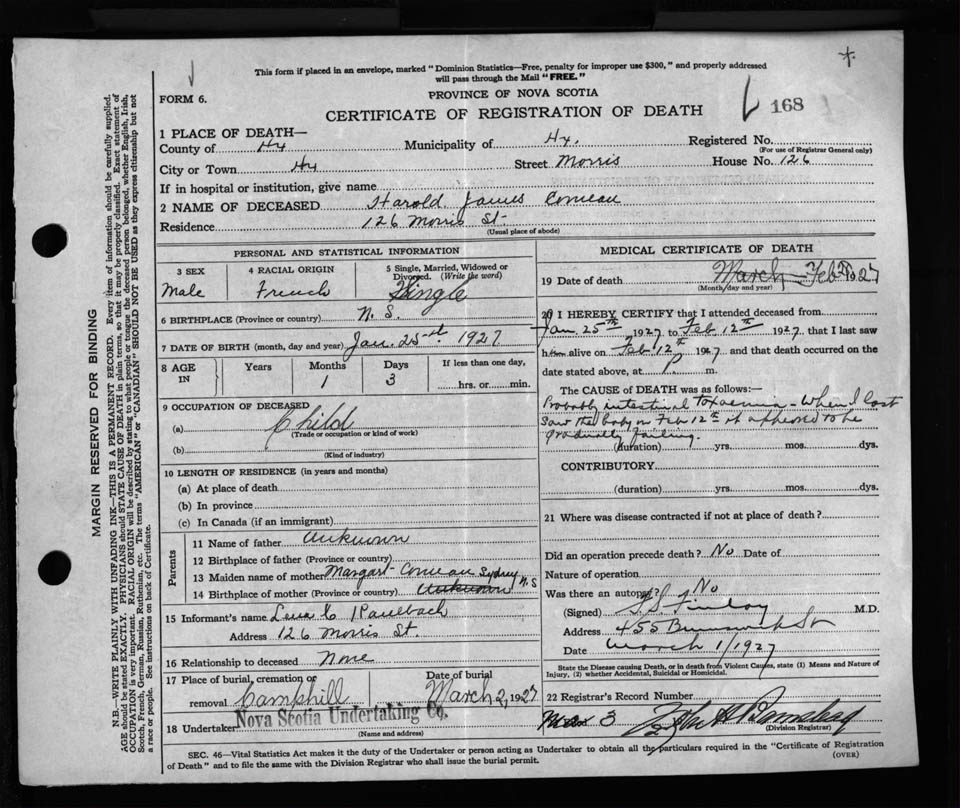 This form if placed in an envelope, marked "Dominion Statistics—Free, penalty for improper use $300," and properly addressed
will pass through the Mail "FREE."
FORM 6.
PROVINCE OF NOVA SCOTIA
CERTIFICATE OF REGISTRATION OF DEATH
168
1 PLACE OF DEATH—
County of Hx Municipality of Hx. Registered No.
(For use of Registrar General only)
City or Town Hx Street Morris House No. 126
If in hospital or institution, give name
2 NAME OF DECEASED Harold James Comeau
Residence 126 Morris St.
(Usual place of abode)
PERSONAL AND STATISTICAL INFORMATION
3 SEX
Male
4 RACIAL ORIGIN
French
5 Single, Married, Widowed or
Divorced. (Write the word)
Single
6 BIRTHPLACE (Province or country) N. S.
7 DATE OF BIRTH (month, day and year) Jan. 25 1927
8 AGE
IN
Years
Months
1
Days
3
If less than one day,
hrs. or min.
9 OCCUPATION OF DECEASED
(a) Child
(Trade or occupation or kind of work)
(b)
(Kind of industry)
10 LENGTH OF RESIDENCE (in years and months)
(a) At place of death
(b) In province
(c) In Canada (if an immigrant)
Parents
11 Name of father Unknown
12 Birthplace of father (Province or country)
13 Maiden name of mother Margaret Comeau
14 Birthplace of mother (Province or country) Unknown Sydney N. S
15 Informant's name
Address 126 Morris St.
16 Relationship to deceased None
17 Place of burial, cremation or
removal Camphill
Date of burial
March 2, 1927
18 Undertaker Nova Scotia Undertaking Co.
(Name and address)
MEDICAL CERTIFICATE OF DEATH
19 Date of death March Feb 1927
(Month, day and year)
20 I HEREBY CERTIFY that I attended deceased from
Jan. 25th 1927 to Feb 12th 1927, that I last saw
him alive on Feb 12th 1927 and that death occurred on the
date stated above, at P. m.
The CAUSE of DEATH was as follows:—
Probably intestinal toxaemia - When I last
saw the baby on Feb 12th it appeared to be
gradually failing.
(duration) yrs. mos. dys.
CONTRIBUTORY
(duration) yrs. mos. dys.
21 Where was disease contracted if not at place of death?
Did an operation precede death? No Date of
Nature of operation
Was there an autopsy? No
(Signed) Finlay M.D.
Address 455 Brunswick St
Date March 1/1927
State the Disease causing Death, or in death from Violent Causes, state (1) Means and Nature of
Injury, (2) whether Accidental, Suicidal or Homicidal.
22 Registrar's Record Number
3
(Division Registrar)
SEC. 46—Vital Statistics Act makes it the duty of the Undertaker or person acting as Undertaker to obtain all the particulars required in the "Certificate of Registration
of Death" and to file the same with the Division Registrar who shall issue the burial permit.
(OVER)
MARGIN RESERVED FOR BINDING
N.B.—WRITE PLAINLY WITH UNFADING INK—THIS IS A PERMANENT RECORD. Every item of information should be carefully supplied.
AGE should be stated EXACTLY. PHYSICIANS should STATE CAUSE OF DEATH in plain terms, so that it may be properly classified. Exact statement of
OCCUPATION is very important. RACIAL ORIGIN will be described by stating to what people or tongue the deceased person belonged, whether English, Irish,
Scotch, French, German, Russian, Ruthenian, etc. The terms "AMERICAN" or "CANADIAN" SHOULD NOT BE USED as they express citizenship but not
a race or people. See instructions on back of Certificate.